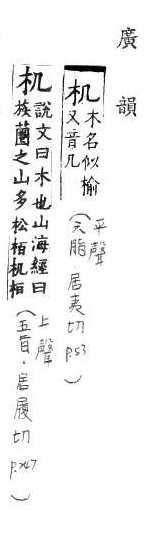 廣韻
机木名似榆
又音几
(平聲
六脂.居夷切
P.53)
机說文曰木也山海經曰
族蕳之山多松栢机桓
(上聲
五旨.居履切
P.247)